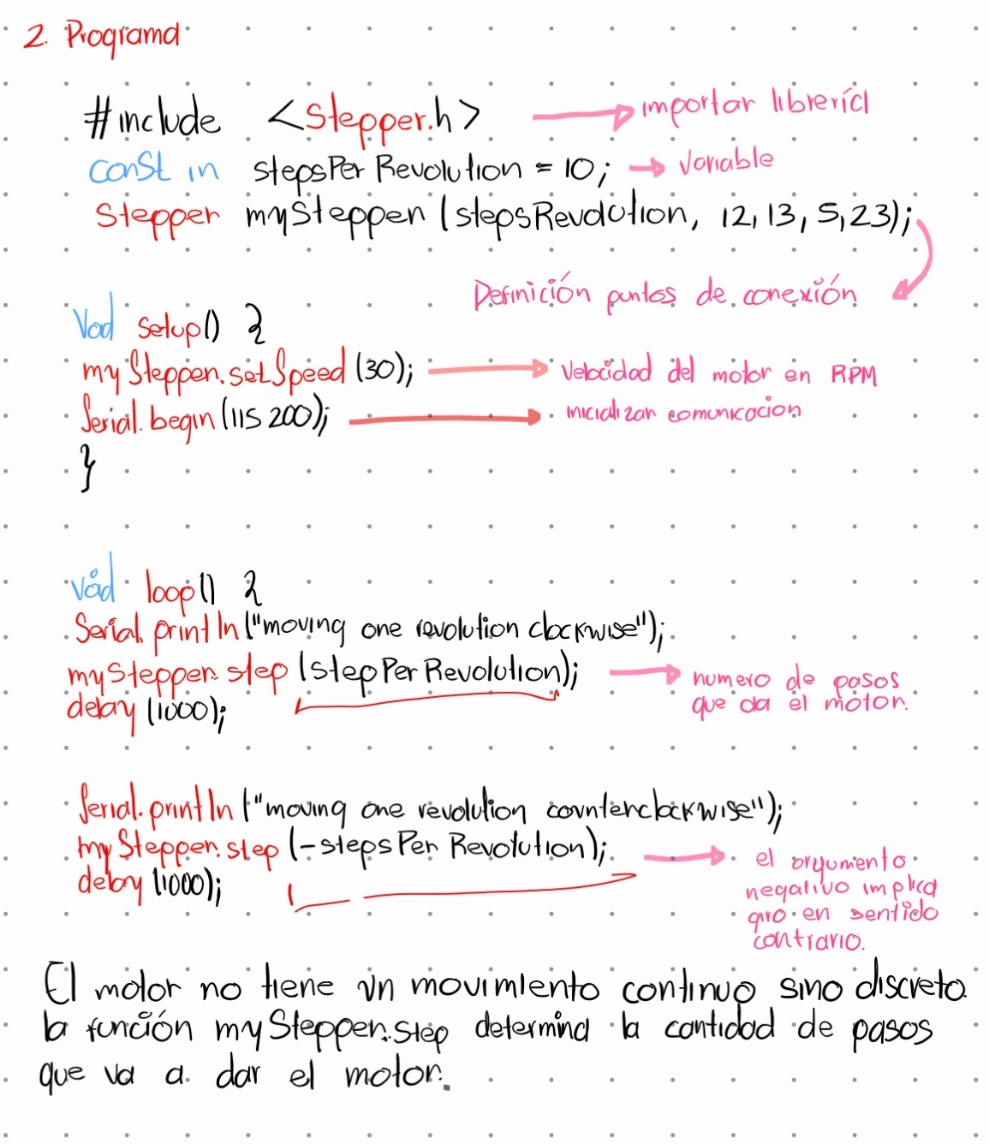 2. Programa
#include <Stepper.h> → importar librería
const in stepsPerRevolution = 10; → Variable
Stepper myStepper (stepsRevolution, 12, 13, 5, 23);
Definición puntos de conexión
Void setup() {
myStepper.setSpeed (30); → Velocidad del motor en RPM
Serial.begin (115 200); → inicializar comunicacion
}
void loop() {
Serial.println ("moving one revolution clockwise");
myStepper.step (stepPerRevolution); → numero de pasos
que da el motor.
delay (1000);
Serial.println ("moving one revolution counterclockwise");
myStepper.step (-stepsPerRevolution); → el argumento
negativo implica
giro en sentido
contrario.
delay (1000);
El motor no tiene un movimiento continuo sino discreto.
la función myStepper.step determina la cantidad de pasos
que va a dar el motor.